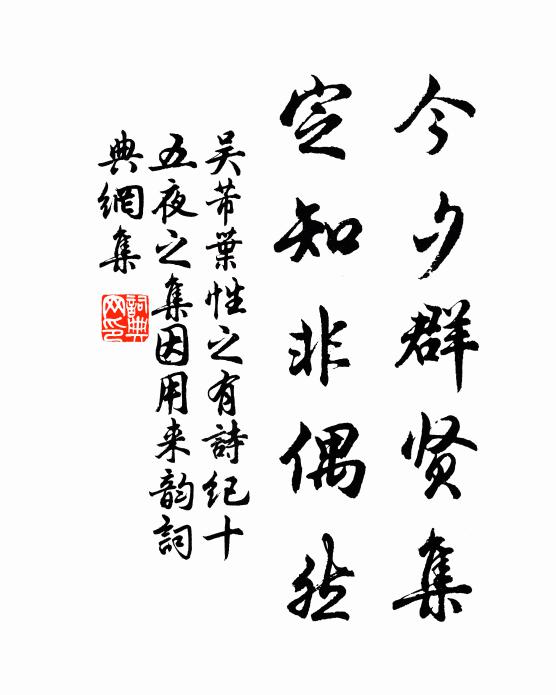 今夕群贤集
定知非偶然
吴芾葉性之有詩纪十
五夜之集因用来韵詞
典網集
詞典
网印